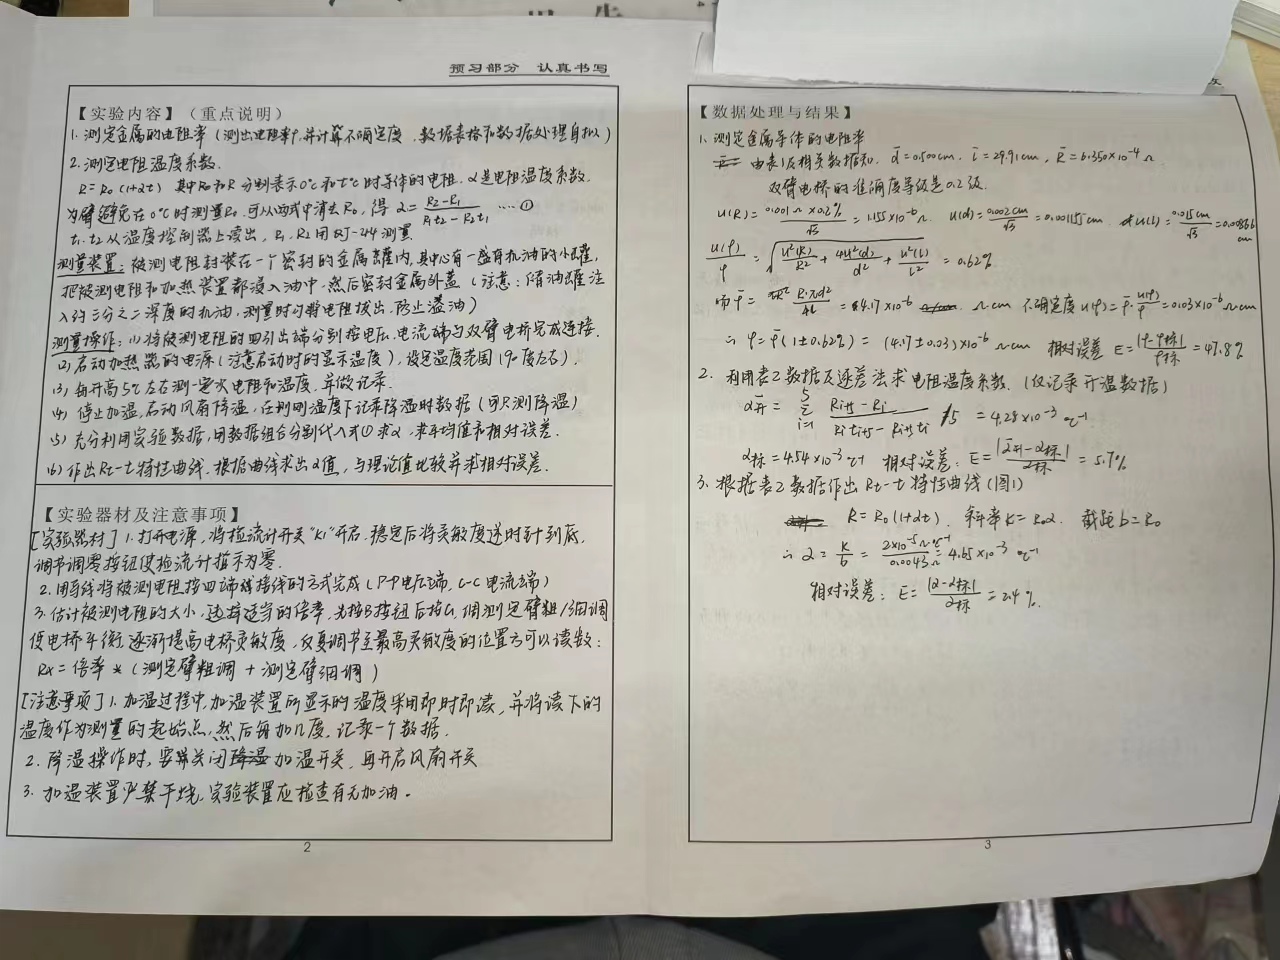 预习部分 认真书写
【实验内容】（重点说明）
1. 测定金属的电阻率（测出电阻率ρ,并计算不确定度，数据表格和数据处理自拟）
2. 测定电阻温度系数.
R=R₀(1+αt) 其中R₀和R分别表示0℃和t℃时导体的电阻. α是电阻温度系数.
为避免在0℃时测量R₀,可以从两式中消去R₀,得 α=(R₂-R₁)/(R₁t₂-R₂t₁) ……①
t₁,t₂从温度控制器上读出，R₁,R₂用QJ-44测量.
测量装置：被测电阻封装在一个密封的金属罐内,其中心有一盛有机油的小罐,
把被测电阻和加热装置都浸入油中.然后密封金属外盖（注意：储油罐注
入约三分之二深度的机油,测量时勿将电阻拔出,防止溢油）
测量操作：(1)将被测电阻的四引出端分别按电压.电流端与双臂电桥完成连接.
(2)启动加热器的电源（注意启动时的显示温度）,设定温度范围(90度左右).
(3)每升高5℃左右测一定次电阻和温度.并做记录.
(4)停止加温,启动风扇降温,在刚刚温度下记录降温时数据（可只测降温）
(5)充分利用实验数据,用数据组合分别代入式①求α,求平均值和相对误差.
(6)作出Rt-t特性曲线.根据曲线求出α值,与理论值比较并求相对误差.
【实验器材及注意事项】
[实验器材]1.打开电源,将检流计开关"K1"开启.稳定后将灵敏度逆时针到底,
调节调零按钮使检流计指示为零.
2.用导线将被测电阻按四端线接线的方式完成(P-P电压端,C-C电流端)
3.估计被测电阻的大小,选择适当的倍率,先按B按钮后按G,调测定臂粗/细调
使电桥平衡.逐渐提高电桥灵敏度,反复调节至最高灵敏度的位置方可以读数：
Rx=倍率*(测定臂粗调+测定臂细调)
[注意事项]1.加温过程中,加温装置所显示的温度采用即时即读,并将读下的
温度作为测量的起始点,然后每加几度,记录一个数据.
2.降温操作时,要关闭加温开关,再开启风扇开关
3.加温装置严禁干烧,实验装置应检查有无加油.
2
【数据处理与结果】
1.测定金属导体的电阻率
由表1及相关数据知. d̄=0.500cm. l̄=29.91cm, R̄=6.350×10⁻⁴Ω
双臂电桥的准确度等级是0.2级.
u(R)=0.001Ω×0.2%/√3=1.155×10⁻⁶Ω. u(d)=0.002cm/√3=0.00115cm. u(l)=0.015cm/√3=0.00866cm
u(ρ)/ρ=√(u²(R)/R²+4u²(d)/d²+u²(l)/l²)=0.62%
而ρ̄=R·πd²/4l=4.17×10⁻⁶ Ω·cm 不确定度u(ρ)=ρ̄·u(ρ)/ρ=0.03×10⁻⁶Ω·cm
∴ρ=ρ̄(1±0.62%)=(4.17±0.03)×10⁻⁶Ω·cm 相对误差 E=|ρ-ρ标|/ρ标=47.8%
2. 利用表2数据及逐差法求电阻温度系数.(仅记录升温数据)
ᾱ升=Σ(i=1→5) (Ri+5-Ri)/(Riti+5-Ri+5ti) /5=4.28×10⁻³℃⁻¹
α标=4.54×10⁻³℃⁻¹ 相对误差：E=|ᾱ升-α标|/α标=5.7%
3.根据表2数据作出Rt-t特性曲线(图1)
R=R₀(1+αt). 斜率K=R₀α. 截距b=R₀
∴α=K/b=2×10⁻⁵Ω·℃⁻¹/0.0043Ω=4.65×10⁻³℃⁻¹
相对误差：E=|α-α标|/α标=2.4%.
3